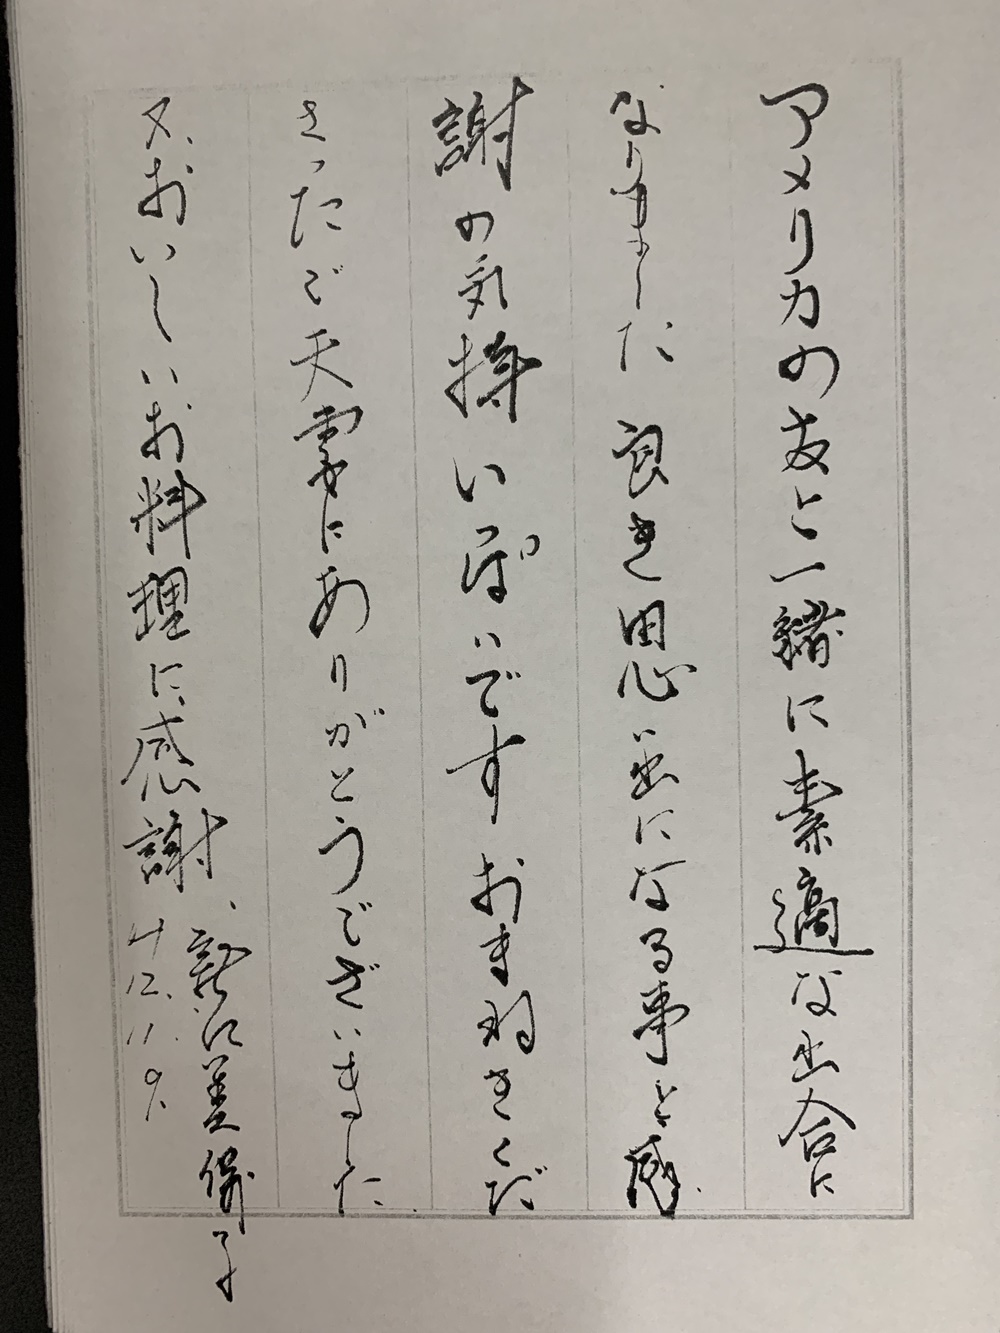 アメリカの友と一緒に素適な出合に
なりました 良き思い出になる事と感
謝の気持いっぱいですおまねきくだ
さったご天妻にありがとうございました
又、おいしいお料理に感謝、
H12.11.9.
美保子